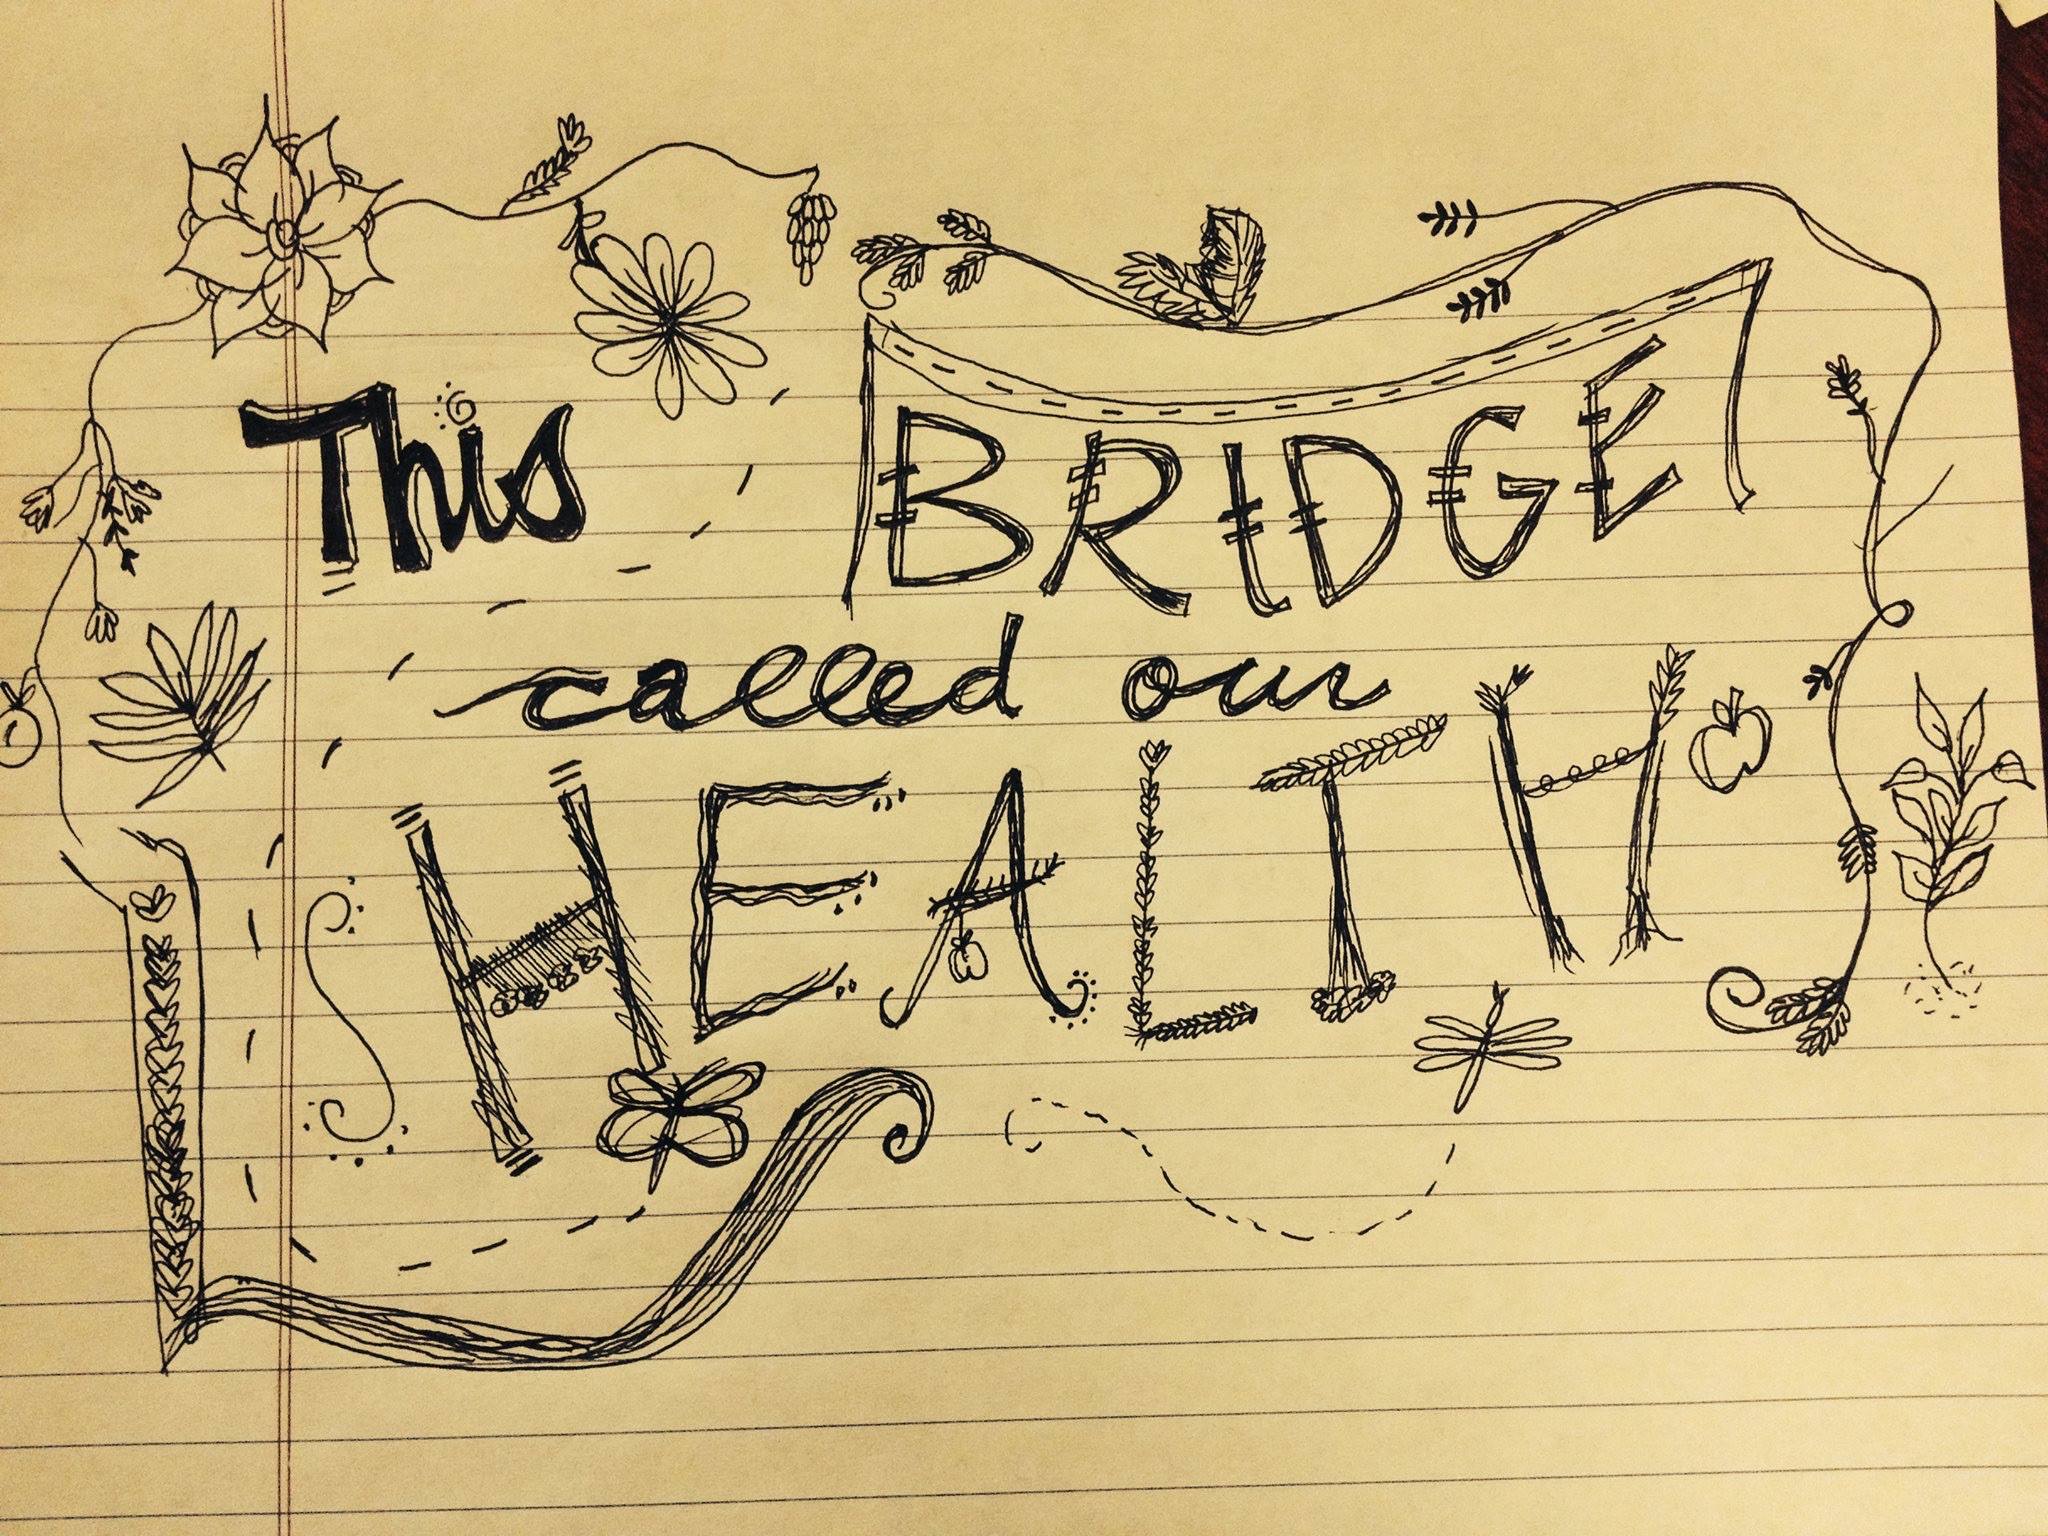 This BRIDGE
called our
HEALTH